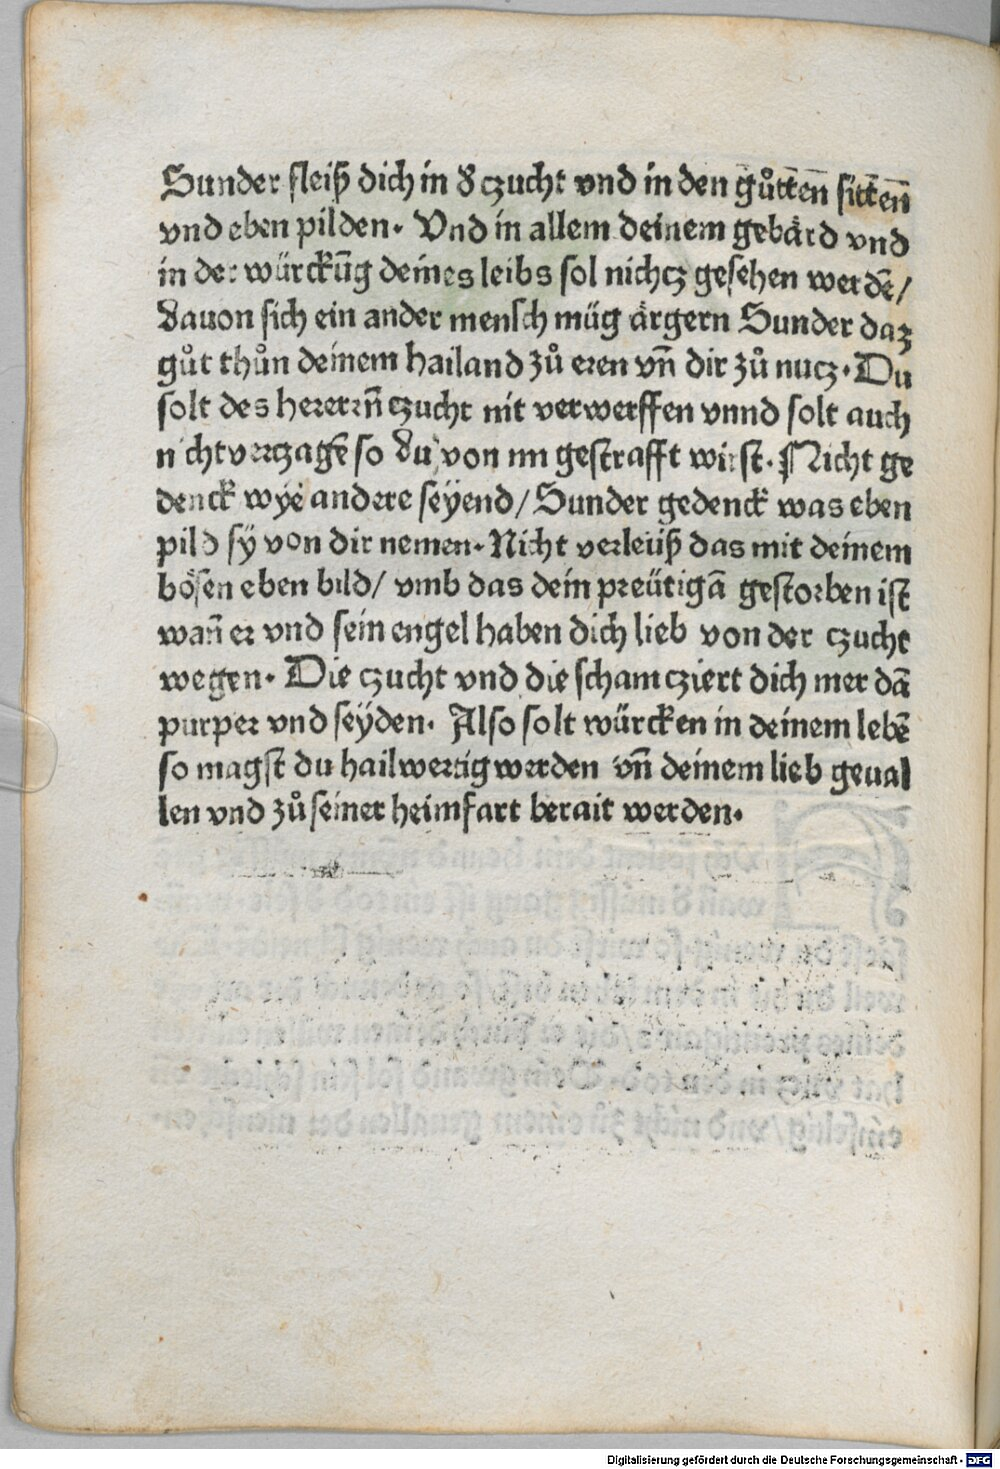 Sunder fleiß dich in d̕ czucht vnd in den gůtten̄ sitten̄
vnd eben pilden. Vnd in allem deinem gebärd vnd
in der würckūg deines leibs sol nichcz gesehen werdē/
dauon sich ein ander mensch müg ärgern Sunder daz
gůt thůn deinem hailand zů eren vn̄ dir zů nucz. Du
solt des hererrn̄ czucht nit verwerffen vnnd solt auch
nicht verczagē so du von im gestrafft wirst. Nicht ge
denck wye andere seyend/ Sunder gedenck was eben
pild sy von dir nemen. Nicht verleüß das mit deinem
bösen eben bild/ vmb das dein preütigā gestorben ist
wan̄ er vnd sein engel haben dich lieb von der czucht
wegen. Die czucht vnd die scham cziert dich mer dā
purper vnd seyden. Also solt würcken in deinem lebē
so magst du hailwertig werden vn̄ deinem lieb geual
len vnd zů seiner heimfart berait werden.
Digitalisierung gefördert durch die Deutsche Forschungsgemeinschaft - DFG